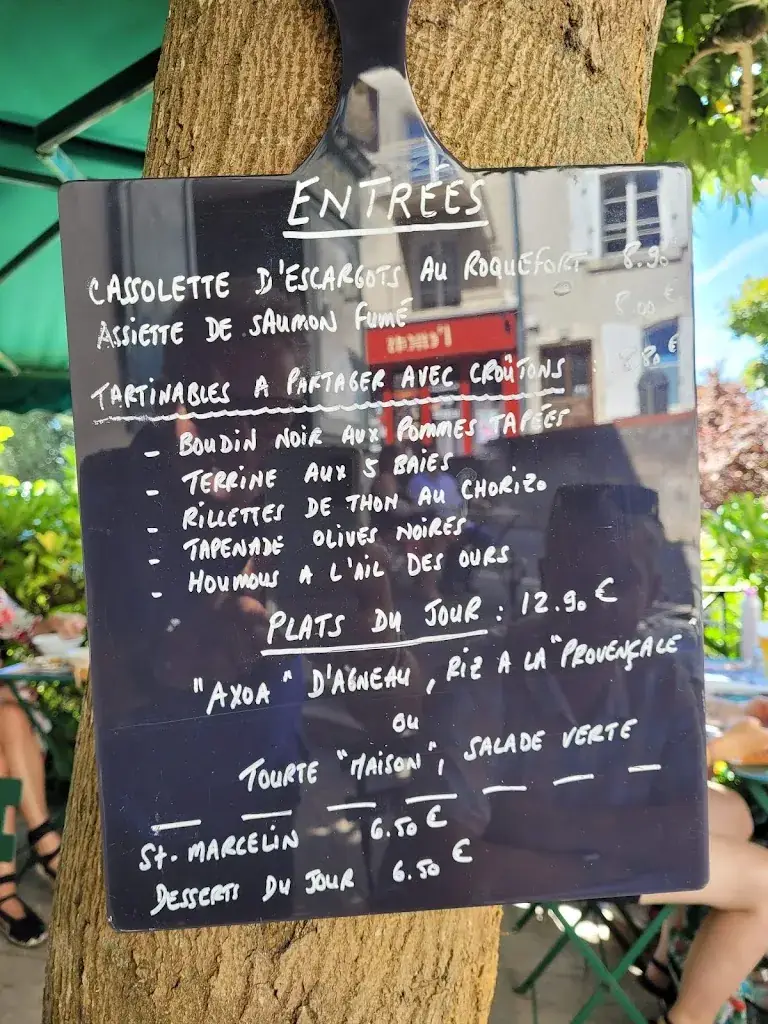 ENTRÉES
CASSOLETTE D'ESCARGOTS AU ROQUEFORT 8.90
ASSIETTE DE SAUMON FUMÉ 8.00 €
TARTINABLES A PARTAGER AVEC CROÛTONS €
- BOUDIN NOIR AUX POMMES TAPÉES
- TERRINE AUX 5 BAIES
- RILLETTES DE THON AU CHORIZO
- TAPENADE OLIVES NOIRES
- HOUMOUS A L'AIL DES OURS
PLATS DU JOUR : 12.90 €
"AXOA" D'AGNEAU, RIZ A LA "PROVENÇALE
OU
TOURTE "MAISON", SALADE VERTE
St. MARCELIN 6.50 €
DESSERTS DU JOUR 6.50 €